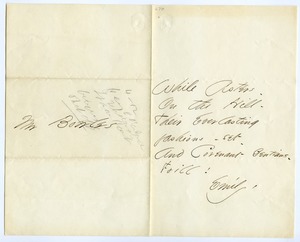 Mr Bowles
While Asters -
On the Hill -
Their Everlasting
fashions - set -
And Covenant Gentians -
Frill!
Emily.